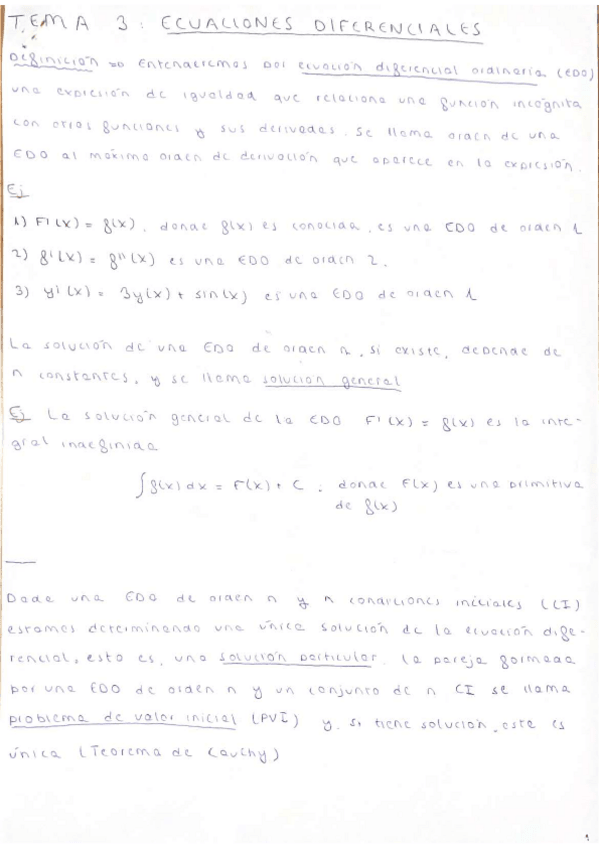 TEMA 3: ECUACIONES DIFERENCIALES
Definición => Entenderemos por ecuación diferencial ordinaria (EDO)
una expresión de igualdad que relaciona una función incógnita
con otras funciones y sus derivadas. Se llama orden de una
EDO al máximo orden de derivación que aparece en la expresión.
Ej
1) F'(x) = f(x), donde f(x) es conocida, es una EDO de orden 1
2) f'(x) = f''(x) es una EDO de orden 2.
3) y'(x) = 3y(x) + sin(x) es una EDO de orden 1
La solución de una EDO de orden n, si existe, depende de
n constantes, y se llama solución general
Ej La solución general de la EDO F'(x) = f(x) es la inte-
gral indefinida
∫f(x) dx = F(x) + C ; donde F(x) es una primitiva
de f(x)
Dada una EDO de orden n y n condiciones iniciales (CI)
estamos determinando una única solución de la ecuación dife-
rencial, esto es, una solución particular. La pareja formada
por una EDO de orden n y un conjunto de n CI se llama
problema de valor inicial (PVI) y, si tiene solución, este es
única (Teorema de Cauchy)
1